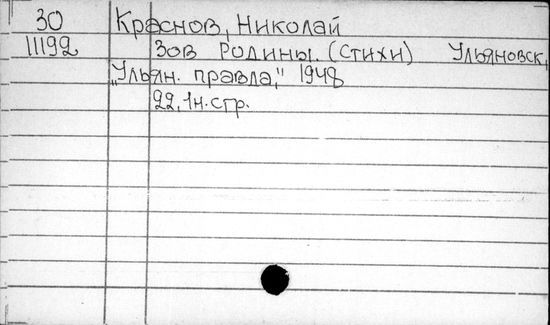 30 Краснов, Николай
11192 Зов Родины. (Стихи) Ульяновск,
„Ульян. правда," 1948
22, 1 н. стр.